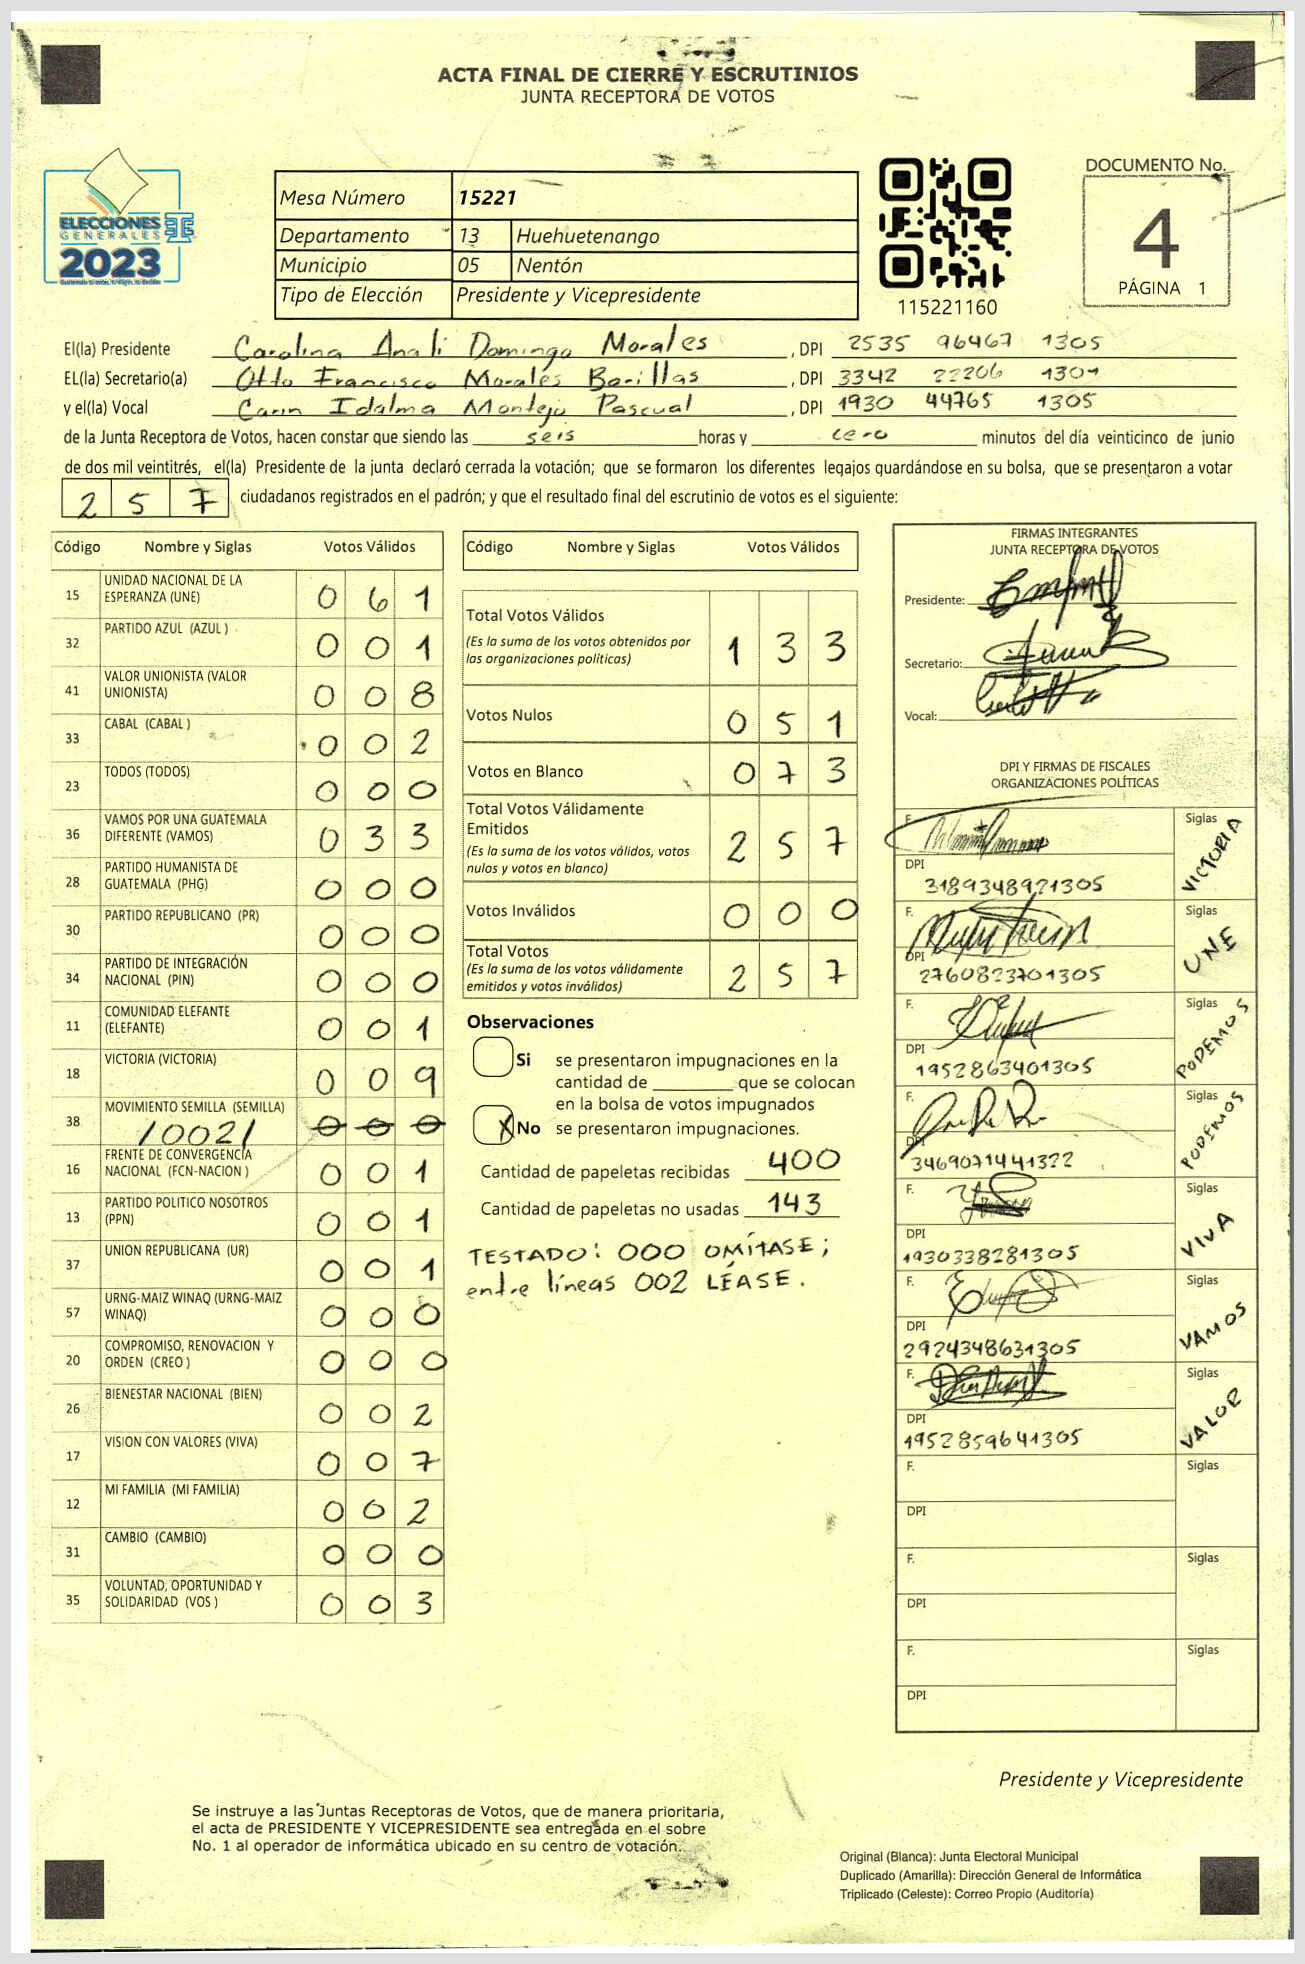 ACTA FINAL DE CIERRE Y ESCRUTINIOS
JUNTA RECEPTORA DE VOTOS
ELECCIONES
GENERALES
2023
Mesa Número 15221
Departamento 13 Huehuetenango
Municipio 05 Nentón
Tipo de Elección Presidente y Vicepresidente
115221160
DOCUMENTO No.
4
PÁGINA 1
El(la) Presidente Carolina Anali Domingo Morales , DPI 2535 96467 1305
EL(la) Secretario(a) Otto Francisco Morales Barillas , DPI 3342 22206 1301
y el(la) Vocal Carin Idalma Montejo Pascual , DPI 1930 44765 1305
de la Junta Receptora de Votos, hacen constar que siendo las seis horas y cero minutos del día veinticinco de junio
de dos mil veintitrés, el(la) Presidente de la junta declaró cerrada la votación; que se formaron los diferentes legajos guardándose en su bolsa, que se presentaron a votar
257 ciudadanos registrados en el padrón; y que el resultado final del escrutinio de votos es el siguiente:
Código Nombre y Siglas Votos Válidos
15 UNIDAD NACIONAL DE LA
ESPERANZA (UNE) 0 6 1
32 PARTIDO AZUL (AZUL ) 0 0 1
41 VALOR UNIONISTA (VALOR
UNIONISTA) 0 0 8
33 CABAL (CABAL ) 0 0 2
23 TODOS (TODOS) 0 0 0
36 VAMOS POR UNA GUATEMALA
DIFERENTE (VAMOS) 0 3 3
28 PARTIDO HUMANISTA DE
GUATEMALA (PHG) 0 0 0
30 PARTIDO REPUBLICANO (PR) 0 0 0
34 PARTIDO DE INTEGRACIÓN
NACIONAL (PIN) 0 0 0
11 COMUNIDAD ELEFANTE
(ELEFANTE) 0 0 1
18 VICTORIA (VICTORIA) 0 0 9
38 MOVIMIENTO SEMILLA (SEMILLA)
/002/ 0 0 0
16 FRENTE DE CONVERGENCIA
NACIONAL (FCN-NACION ) 0 0 1
13 PARTIDO POLITICO NOSOTROS
(PPN) 0 0 1
37 UNION REPUBLICANA (UR) 0 0 1
57 URNG-MAIZ WINAQ (URNG-MAIZ
WINAQ) 0 0 0
20 COMPROMISO, RENOVACION Y
ORDEN (CREO ) 0 0 0
26 BIENESTAR NACIONAL (BIEN) 0 0 2
17 VISION CON VALORES (VIVA) 0 0 7
12 MI FAMILIA (MI FAMILIA) 0 0 2
31 CAMBIO (CAMBIO) 0 0 0
35 VOLUNTAD, OPORTUNIDAD Y
SOLIDARIDAD (VOS ) 0 0 3
Código Nombre y Siglas Votos Válidos
Total Votos Válidos
(Es la suma de los votos obtenidos por
las organizaciones políticas) 1 3 3
Votos Nulos 0 5 1
Votos en Blanco 0 7 3
Total Votos Válidamente
Emitidos
(Es la suma de los votos válidos, votos
nulos y votos en blanco) 2 5 7
Votos Inválidos 0 0 0
Total Votos
(Es la suma de los votos válidamente
emitidos y votos inválidos) 2 5 7
Observaciones
Si se presentaron impugnaciones en la
cantidad de ________ que se colocan
en la bolsa de votos impugnados
X No se presentaron impugnaciones.
Cantidad de papeletas recibidas 400
Cantidad de papeletas no usadas 143
TESTADO: 000 OMÍTASE;
entre líneas 002 LÉASE.
FIRMAS INTEGRANTES
JUNTA RECEPTORA DE VOTOS
Presidente:
Secretario:
Vocal:
DPI Y FIRMAS DE FISCALES
ORGANIZACIONES POLÍTICAS
F. Siglas VICTORIA
DPI
3189348921305
F. Siglas UNE
DPI
2760823701305
F. Siglas PODEMOS
DPI
1952863401305
F. Siglas PODEMOS
DPI
3469071441322
F. Siglas VIVA
DPI
1930338281305
F. Siglas VAMOS
DPI
2924348631305
F. Siglas VALOR
DPI
1952859641305
F. Siglas
DPI
F. Siglas
DPI
F. Siglas
DPI
Presidente y Vicepresidente
Se instruye a las Juntas Receptoras de Votos, que de manera prioritaria,
el acta de PRESIDENTE Y VICEPRESIDENTE sea entregada en el sobre
No. 1 al operador de informática ubicado en su centro de votación.
Original (Blanca): Junta Electoral Municipal
Duplicado (Amarilla): Dirección General de Informática
Triplicado (Celeste): Correo Propio (Auditoría)